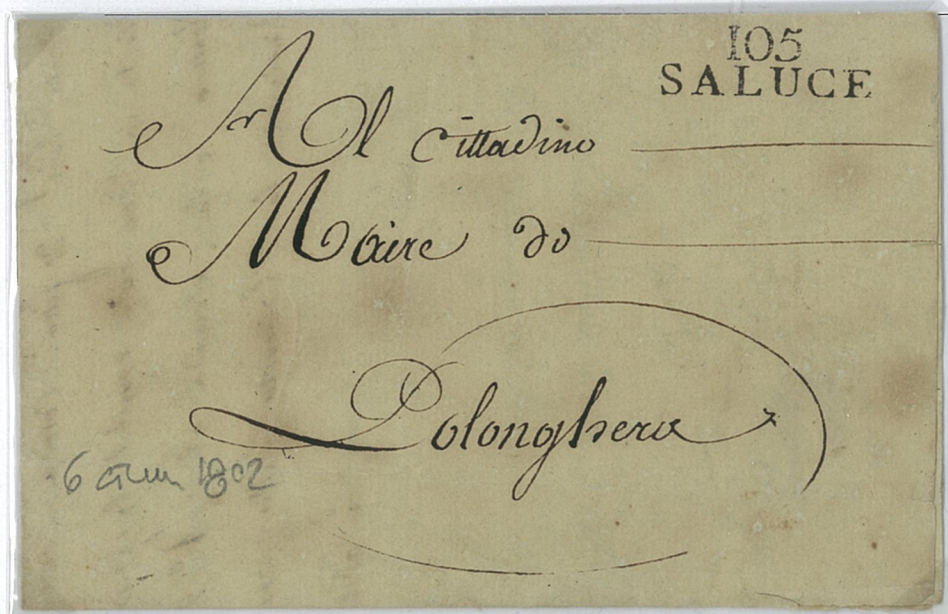 105
SALUCE
Al cittadino
Maire di
Polonghera
6 1802